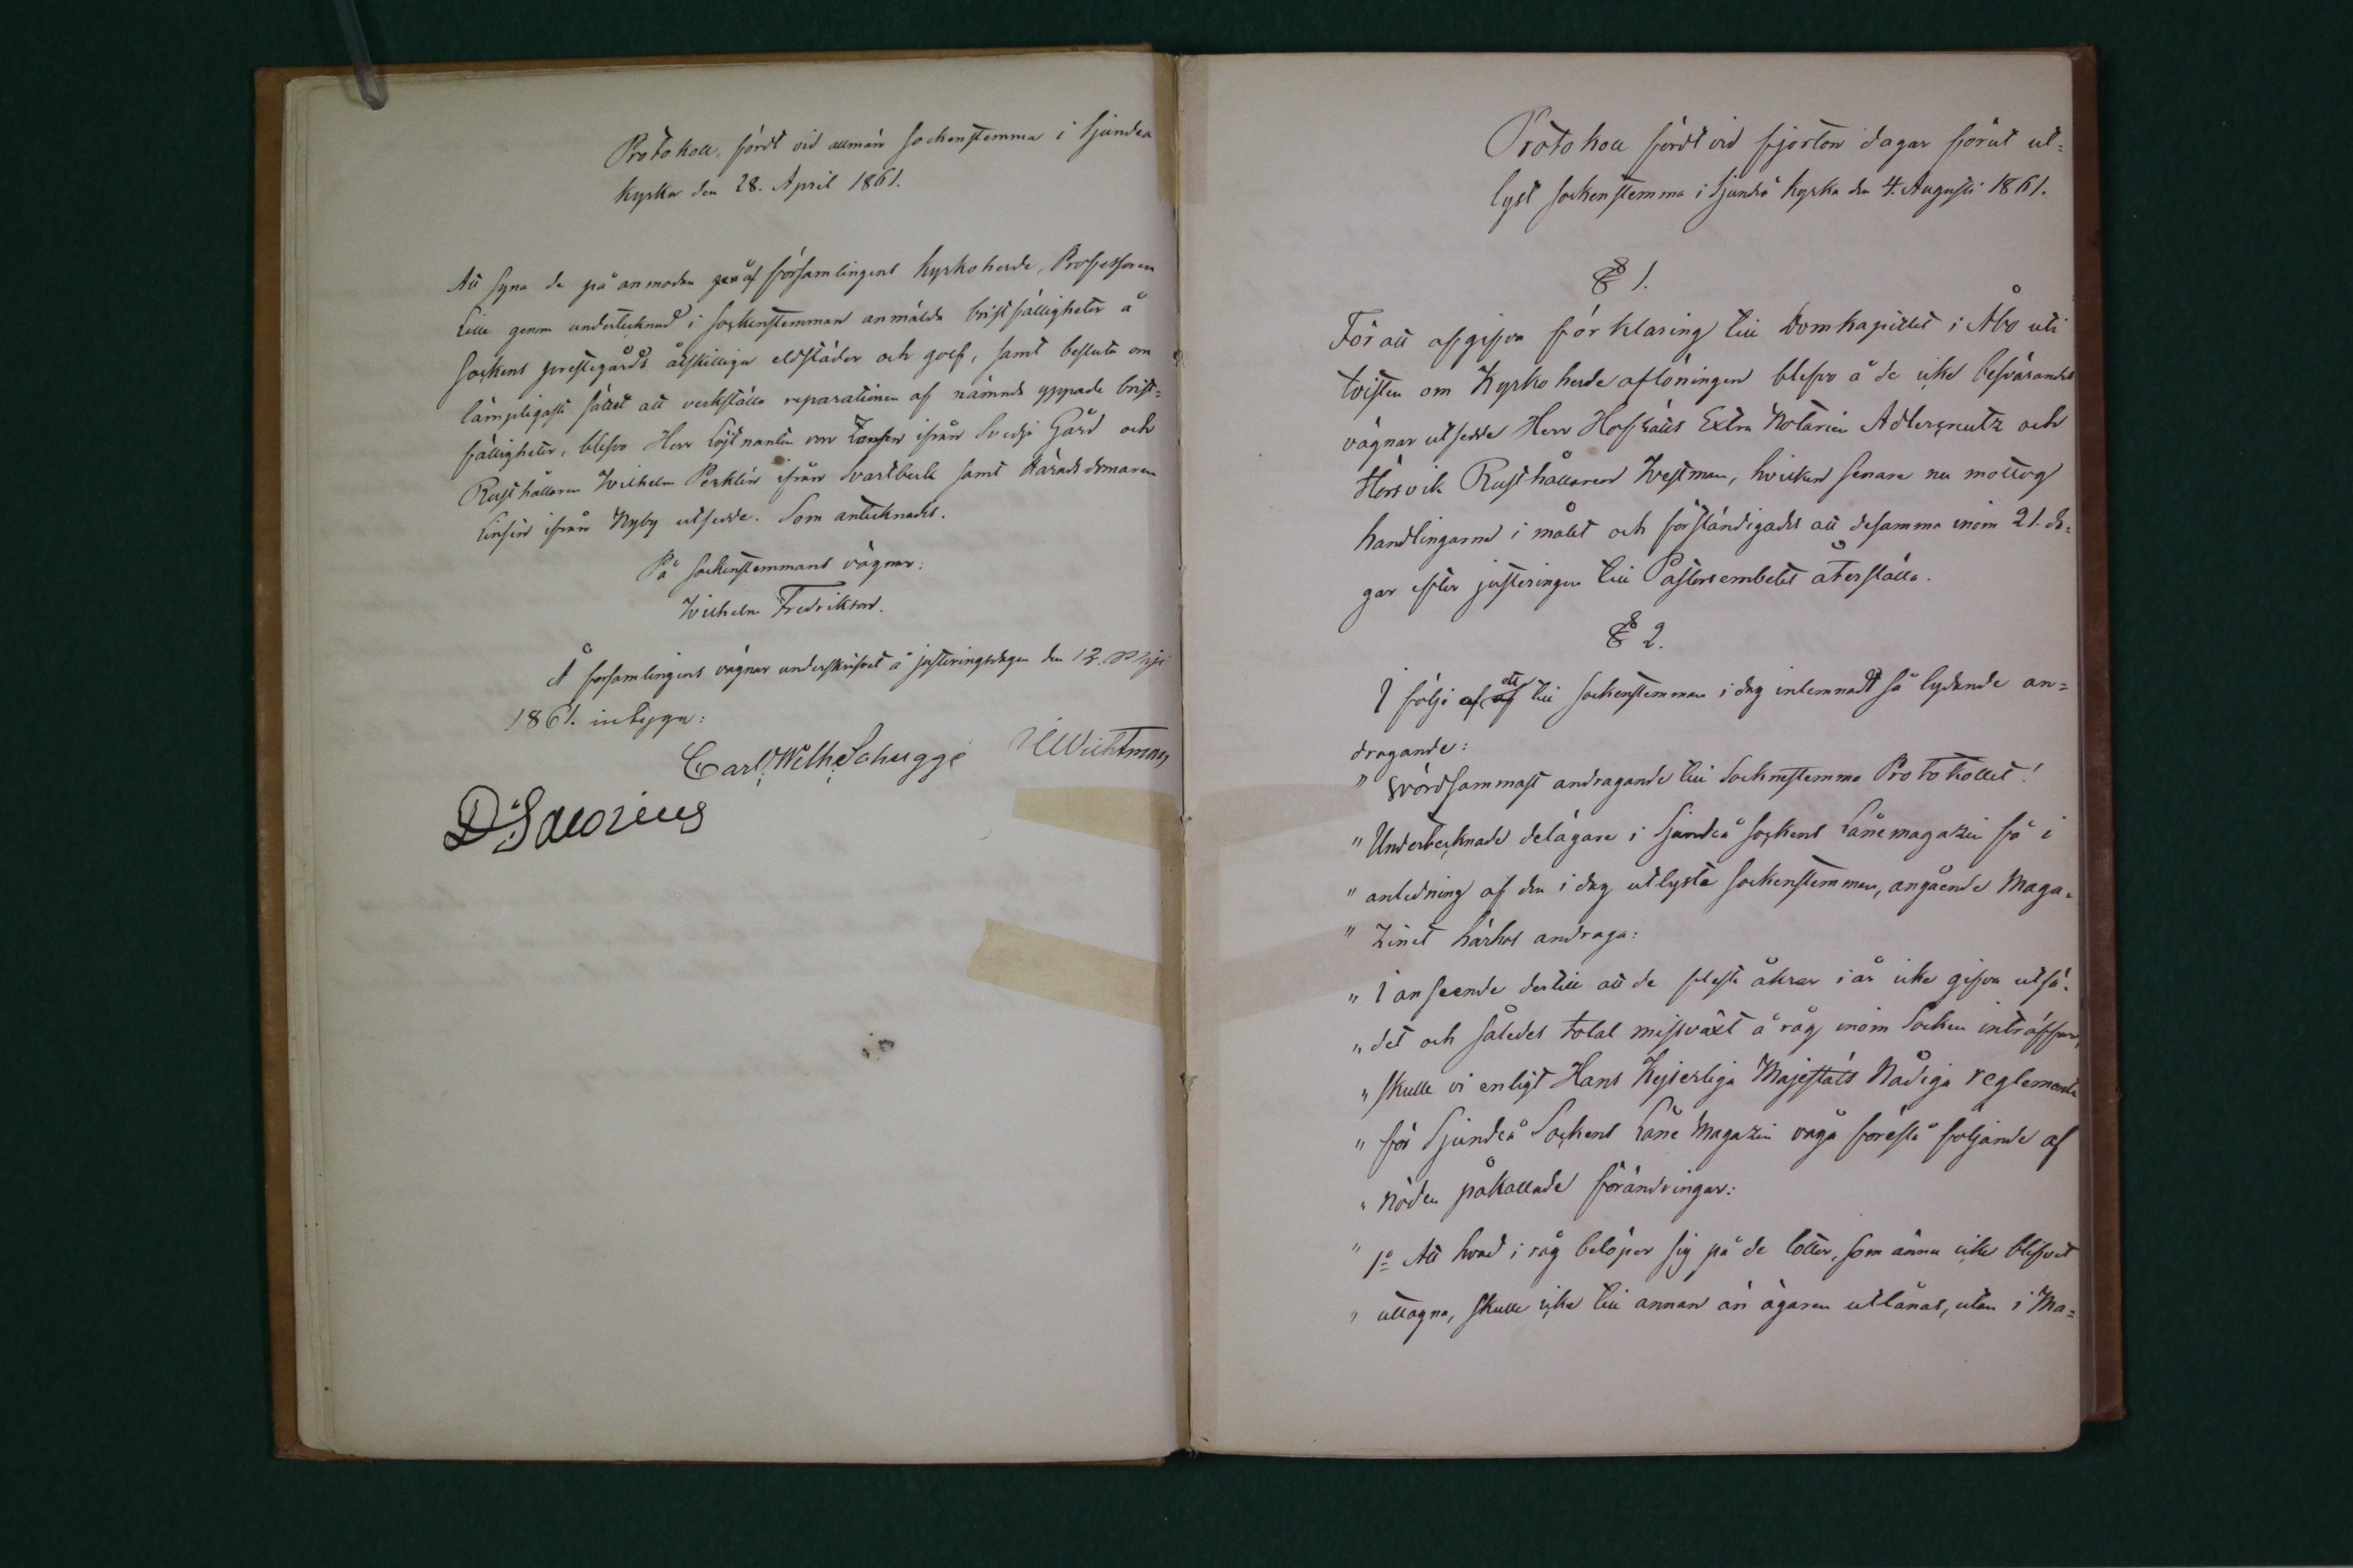 Protokoll, fördt vid allmän Sockenstemma i Sjundeå
kyrka den 28. April 1861.
Att syna de på anmodan af församlingens Kyrkoherde, Professoren
Lille genom undertecknad i Sockenstemman anmälda bristfälligheter å
Sockens prestegårds åtskilliga eldstäder och golf, samt besluta om
lämpligaste sättet att verkställa reparationen af nämnde yppade brist-
fälligheter, blefvo Herr Löjtnanten von ifrån Svedje Gård och
Rusthållaren Wilhelm Perklén ifrån Svartbeck samt Häradsdomaren
Linsén ifrån Nyby utsedde. Som antecknades.
På Sockenstemmans vägnar:
Wilhelm Fredrikson.
Å församlingens vägnar underskrifvet å justeringsdagen den 12. Maji
1861. intyga:
Carl Wilh. Schugge Wichtman
D. Saxorius
Protokoll fördt vid fjorton dagar förut ut-
lyst sockenstemma i Sjundeå kyrka den 4. Augusti 1861.
§ 1.
För att afgifva förklaring till Domkapitlet i Åbo uti
tvisten om Kyrkoherde aflöningen blefvo å de icke besvärandes
vägnar utsedde Herr Hofrätts Extra Notarien Adlercreutz och
Hörsvik Rusthållaren Westman, hvilken senare nu mottog
handlingarne i målet och förständigades att desamma inom 21. da-
gar efter justeringen till Pastorsembetet återställa.
§ 2.
I följe af ett till sockenstemman i dag inlemnadt så lydande an-
dragande:
" Wördsammast andragande till Sockenstemmo Protokollet!
" Undertecknade delägare i Sjundeå sockens Lånemagazin få i
" anledning af den i dag utlysta sockenstemman, angående Maga-
" zinet härhos andraga:
" I anseende dertill att de flesta åkrar i år icke gifva utsä-
" det och således total missväxt å råg inom Socken inträffar,
" skulle vi enligt Hans Kejserliga Majestäts Nådiga reglemente
" för Sjundeå Sockens Låne Magazin våga föreslå följande af
" nöden påkallade förändringar:
" 1o Att hvad i råg belöper sig på de lotter, som ännu icke blifvit
" uttagna, skulle icke till annan än ägaren utlånas, utan i Ma-